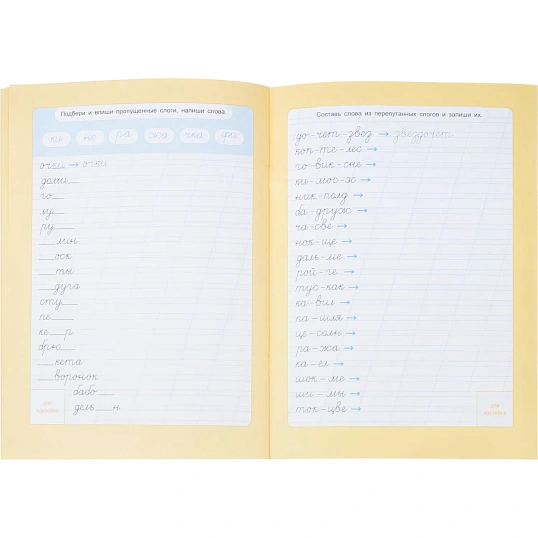 Подбери и впиши пропущенные слоги, напиши слова.
ки не ра жа чка фи
очки → очки
доми__
го__
лу__
ру__
__мин
__оск
__ты
__дуга
сту__
пе__
ке__р
брю__
__кета
__воронок
бабо__
дель__н
для наклейки
Составь слова из перепутанных слогов и запиши их.
до-чет-звез → звездочет
коп-те-лес →
го-вик-сне →
ка-мос-э →
ник-полд →
ба-друж →
ча-све →
нок-ще →
даль-ме →
рой-ге →
тус-как →
ка-вил →
па-шля →
це-солн →
ра-жа →
ка-ел →
шок-ме →
ши-мы →
ток-цве →
для наклейки